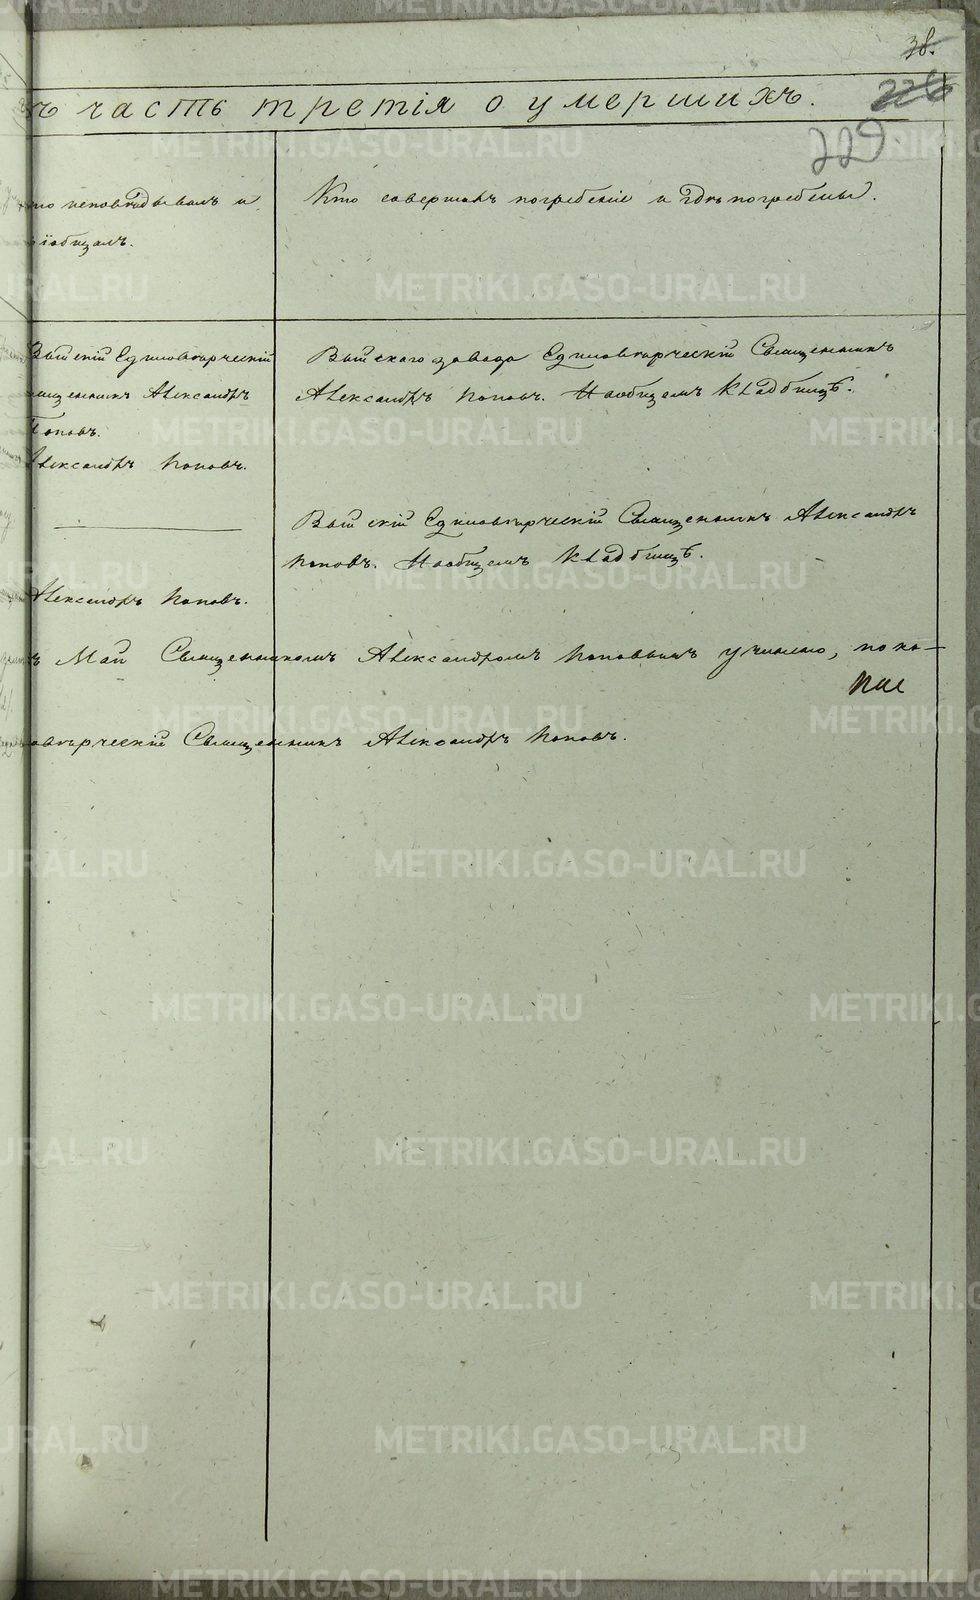 38.
226
229
ъ часть третія о умершихъ.
то исповѣдывалъ и
ріобщалъ.
Кто совершалъ погребеніе и гдѣ погребены.
Выйскій Единовѣрческій
Священникъ Александръ
Поповъ.
Александръ Поповъ.
Выйскаго завода Единовѣрческій Священникъ
Александръ Поповъ. На общемъ кладбищѣ.
Выйскій Единовѣрческій Священникъ Александръ
Поповъ. На общемъ кладбищѣ.
Александръ Поповъ.
ъ Май Священникомъ Александромъ Поповымъ учинено,
овѣрческій Священникъ Александръ Поповъ.
METRIKI.GASO-URAL.RU